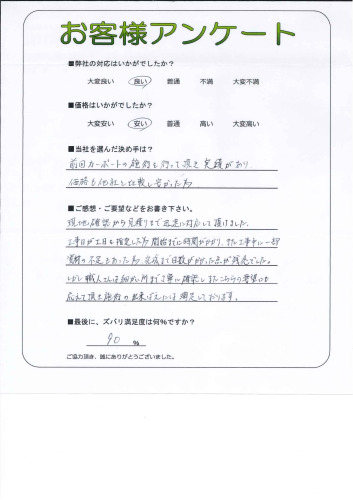 お客様アンケート
■弊社の対応はいかがでしたか?
大変良い 良い 普通 不満 大変不満
■価格はいかがでしたか?
大変安い 安い 普通 高い 大変高い
■当社を選んだ決め手は?
前回カーポートの施術を行って頂き実績があり
価格も他社と比較し安かった為
■ご感想・ご要望などをお書き下さい。
現地確認から見積りまで迅速に対応して頂けました。
工事日が土日を指定した為開始までに時間がかかり、また工事中に一部
資材の不足もあった為、完成まで日数がかかった点が残念でした。
しかし職人さんは細かい所まで丁寧に確認しまたこちらの要望にも
応えて頂き施術の出来ばえには満足しております。
■最後に、ズバリ満足度は何%ですか?
90 %
ご協力頂き、誠にありがとうございました。